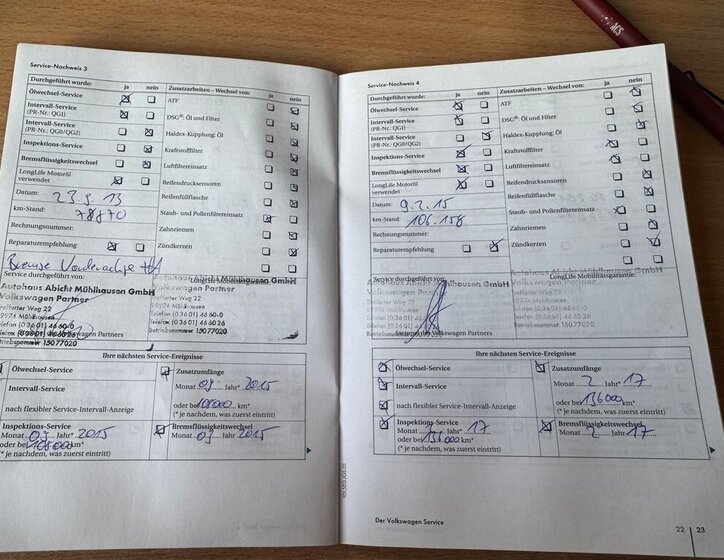 ACS
Service-Nachweis 3
Durchgeführt wurde: ja nein
Zusatzarbeiten – Wechsel von: ja nein
Ölwechsel-Service
ATF
Intervall-Service
(PR-Nr.: QGI)
DSG®: Öl und Filter
Intervall-Service
(PR-Nr.: QG0/QG2)
Haldex-Kupplung: Öl
Inspektions-Service
Kraftstofffilter
Bremsflüssigkeitswechsel
Luftfiltereinsatz
LongLife Motoröl
verwendet
Reifendrucksensoren
Datum: 23.9.13
Reifenfüllflasche
km-Stand: 78870
Staub- und Pollenfiltereinsatz
Rechnungsnummer:
Zahnriemen
Reparaturempfehlung
Zündkerzen
Bremse Vorderachse
Service durchgeführt von:
LongLife Mobilitätsgarantie:
Autohaus Abicht Mühlhausen GmbH
Volkswagen Partner
Treffurter Weg 22
99974 Mühlhausen
Telefon (03601) 4660-0
Telefax (03601) 466026
Betriebsnummer 15077020
Abicht Mühlhausen GmbH
Volkswagen Partner
Treffurter Weg 22
99974 Mühlhausen
Telefon (03601) 4660-0
Telefax (03601) 466026
Betriebsnummer 15077020
Ihre nächsten Service-Ereignisse
Ölwechsel-Service
Zusatzumfänge
Monat 09 Jahr* 2015
Intervall-Service
oder bei 108000 km*
nach flexibler Service-Intervall-Anzeige
(* je nachdem, was zuerst eintritt)
Inspektions-Service
Monat 09 Jahr* 2015
oder bei 108000 km*
(* je nachdem, was zuerst eintritt)
Bremsflüssigkeitswechsel
Monat 09 Jahr 2015
Service-Nachweis 4
Durchgeführt wurde: ja nein
Zusatzarbeiten – Wechsel von: ja nein
Ölwechsel-Service
ATF
Intervall-Service
(PR-Nr.: QGI)
DSG®: Öl und Filter
Intervall-Service
(PR-Nr.: QG0/QG2)
Haldex-Kupplung: Öl
Inspektions-Service
Kraftstofffilter
Bremsflüssigkeitswechsel
Luftfiltereinsatz
LongLife Motoröl
verwendet
Reifendrucksensoren
Datum: 9.2.15
Reifenfüllflasche
km-Stand: 106.158
Staub- und Pollenfiltereinsatz
Rechnungsnummer:
Zahnriemen
Reparaturempfehlung
Zündkerzen
Service durchgeführt von:
LongLife Mobilitätsgarantie:
Autohaus Abicht Mühlhausen GmbH
Volkswagen Partner
Treffurter Weg 22
99974 Mühlhausen
Telefon (03601) 4660-0
Telefax (03601) 466026
Betriebsnummer 15077020
Volkswagen Partners
Ihre nächsten Service-Ereignisse
Ölwechsel-Service
Zusatzumfänge
Monat 2 Jahr* 17
Intervall-Service
oder bei 136000 km*
nach flexibler Service-Intervall-Anzeige
(* je nachdem, was zuerst eintritt)
Inspektions-Service
Monat 2 Jahr* 17
oder bei 136000 km*
(* je nachdem, was zuerst eintritt)
Bremsflüssigkeitswechsel
Monat 2 Jahr 17
Der Volkswagen Service
22 | 23